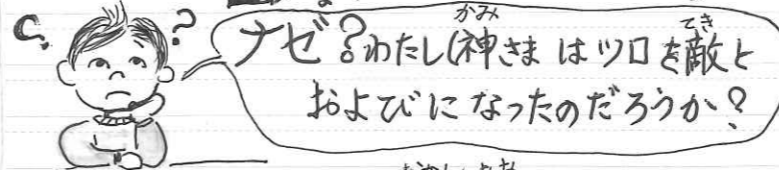 ナゼ？わたし(神さまはツロを敵と
かみ
てき
およびになったのだろうか？
？
？